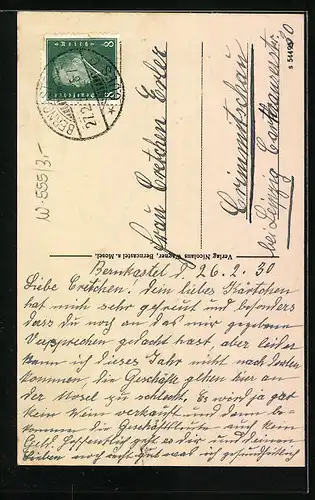 Bernkastel d. 26.2.30
Liebe Gretchen! Dein liebes Kärtchen
hat mich sehr gefreut und besonders
dass du noch an das mir gegebene
Versprechen gedacht hast, aber leider
kann ich dieses Jahr nicht nach dorten
kommen, die Geschäfte gehen hier an
der Mosel zu schlecht. Es wird ja gar
kein Wein verkauft und dann be-
kommen die Geschäftleute auch kein
Geld. Hoffentlich geht es dir und deinen
Lieben noch recht gut was ich gesundheitlich
Verlag Nicolaus Wagner, Berncastel a. Mosel.
Frau Gretchen Erler
Crimmitschau
bei Leipzig
S 5449
8 Deutsches 8
27.2
W-555/3,-